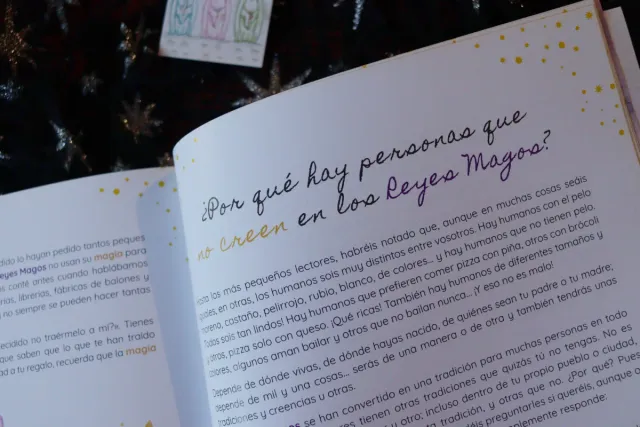 dido lo hayan pedido tantos peques
eyes Magos no usan su magia para
s conté antes cuando hablábamos
rías, librerías, fábricas de balones y
y no siempre se pueden hacer tantas
ecidido no traérmela a mí?». Tienes
que saben que lo que te han traído
ad a tu regalo, recuerda que la magia
¿Por qué hay personas que
no creen en los Reyes Magos?
los más pequeños lectores, habréis notado que, aunque en muchas cosas seáis
iguales, en otras, los humanos sois muy distintos entre vosotros. Hay humanos con el pelo
moreno, castaño, pelirrojo, rubio, blanco, de colores... y hay humanos que no tienen pelo.
¡Todos sois tan lindos! Hay humanos que prefieren comer pizza con piña, otros con brócoli
y otros, pizza solo con queso. ¡Qué rica! También hay humanos de diferentes tamaños y
colores, algunos aman bailar y otros que no bailan nunca... ¡Y eso no es malo!
Depende de dónde vivas, de dónde hayas nacido, de quiénes sean tu padre o tu madre;
depende de mil y una cosas... serás de una manera o de otra y también tendrás unas
tradiciones y creencias u otras.
se han convertido en una tradición para muchas personas en todo
tienen otras tradiciones que quizás tú no tengas. No es
u otro; incluso dentro de tu propio pueblo o ciudad,
tradición, y otras que no. ¿Por qué? Pues
preguntarles si queréis, aunque
simplemente responde: